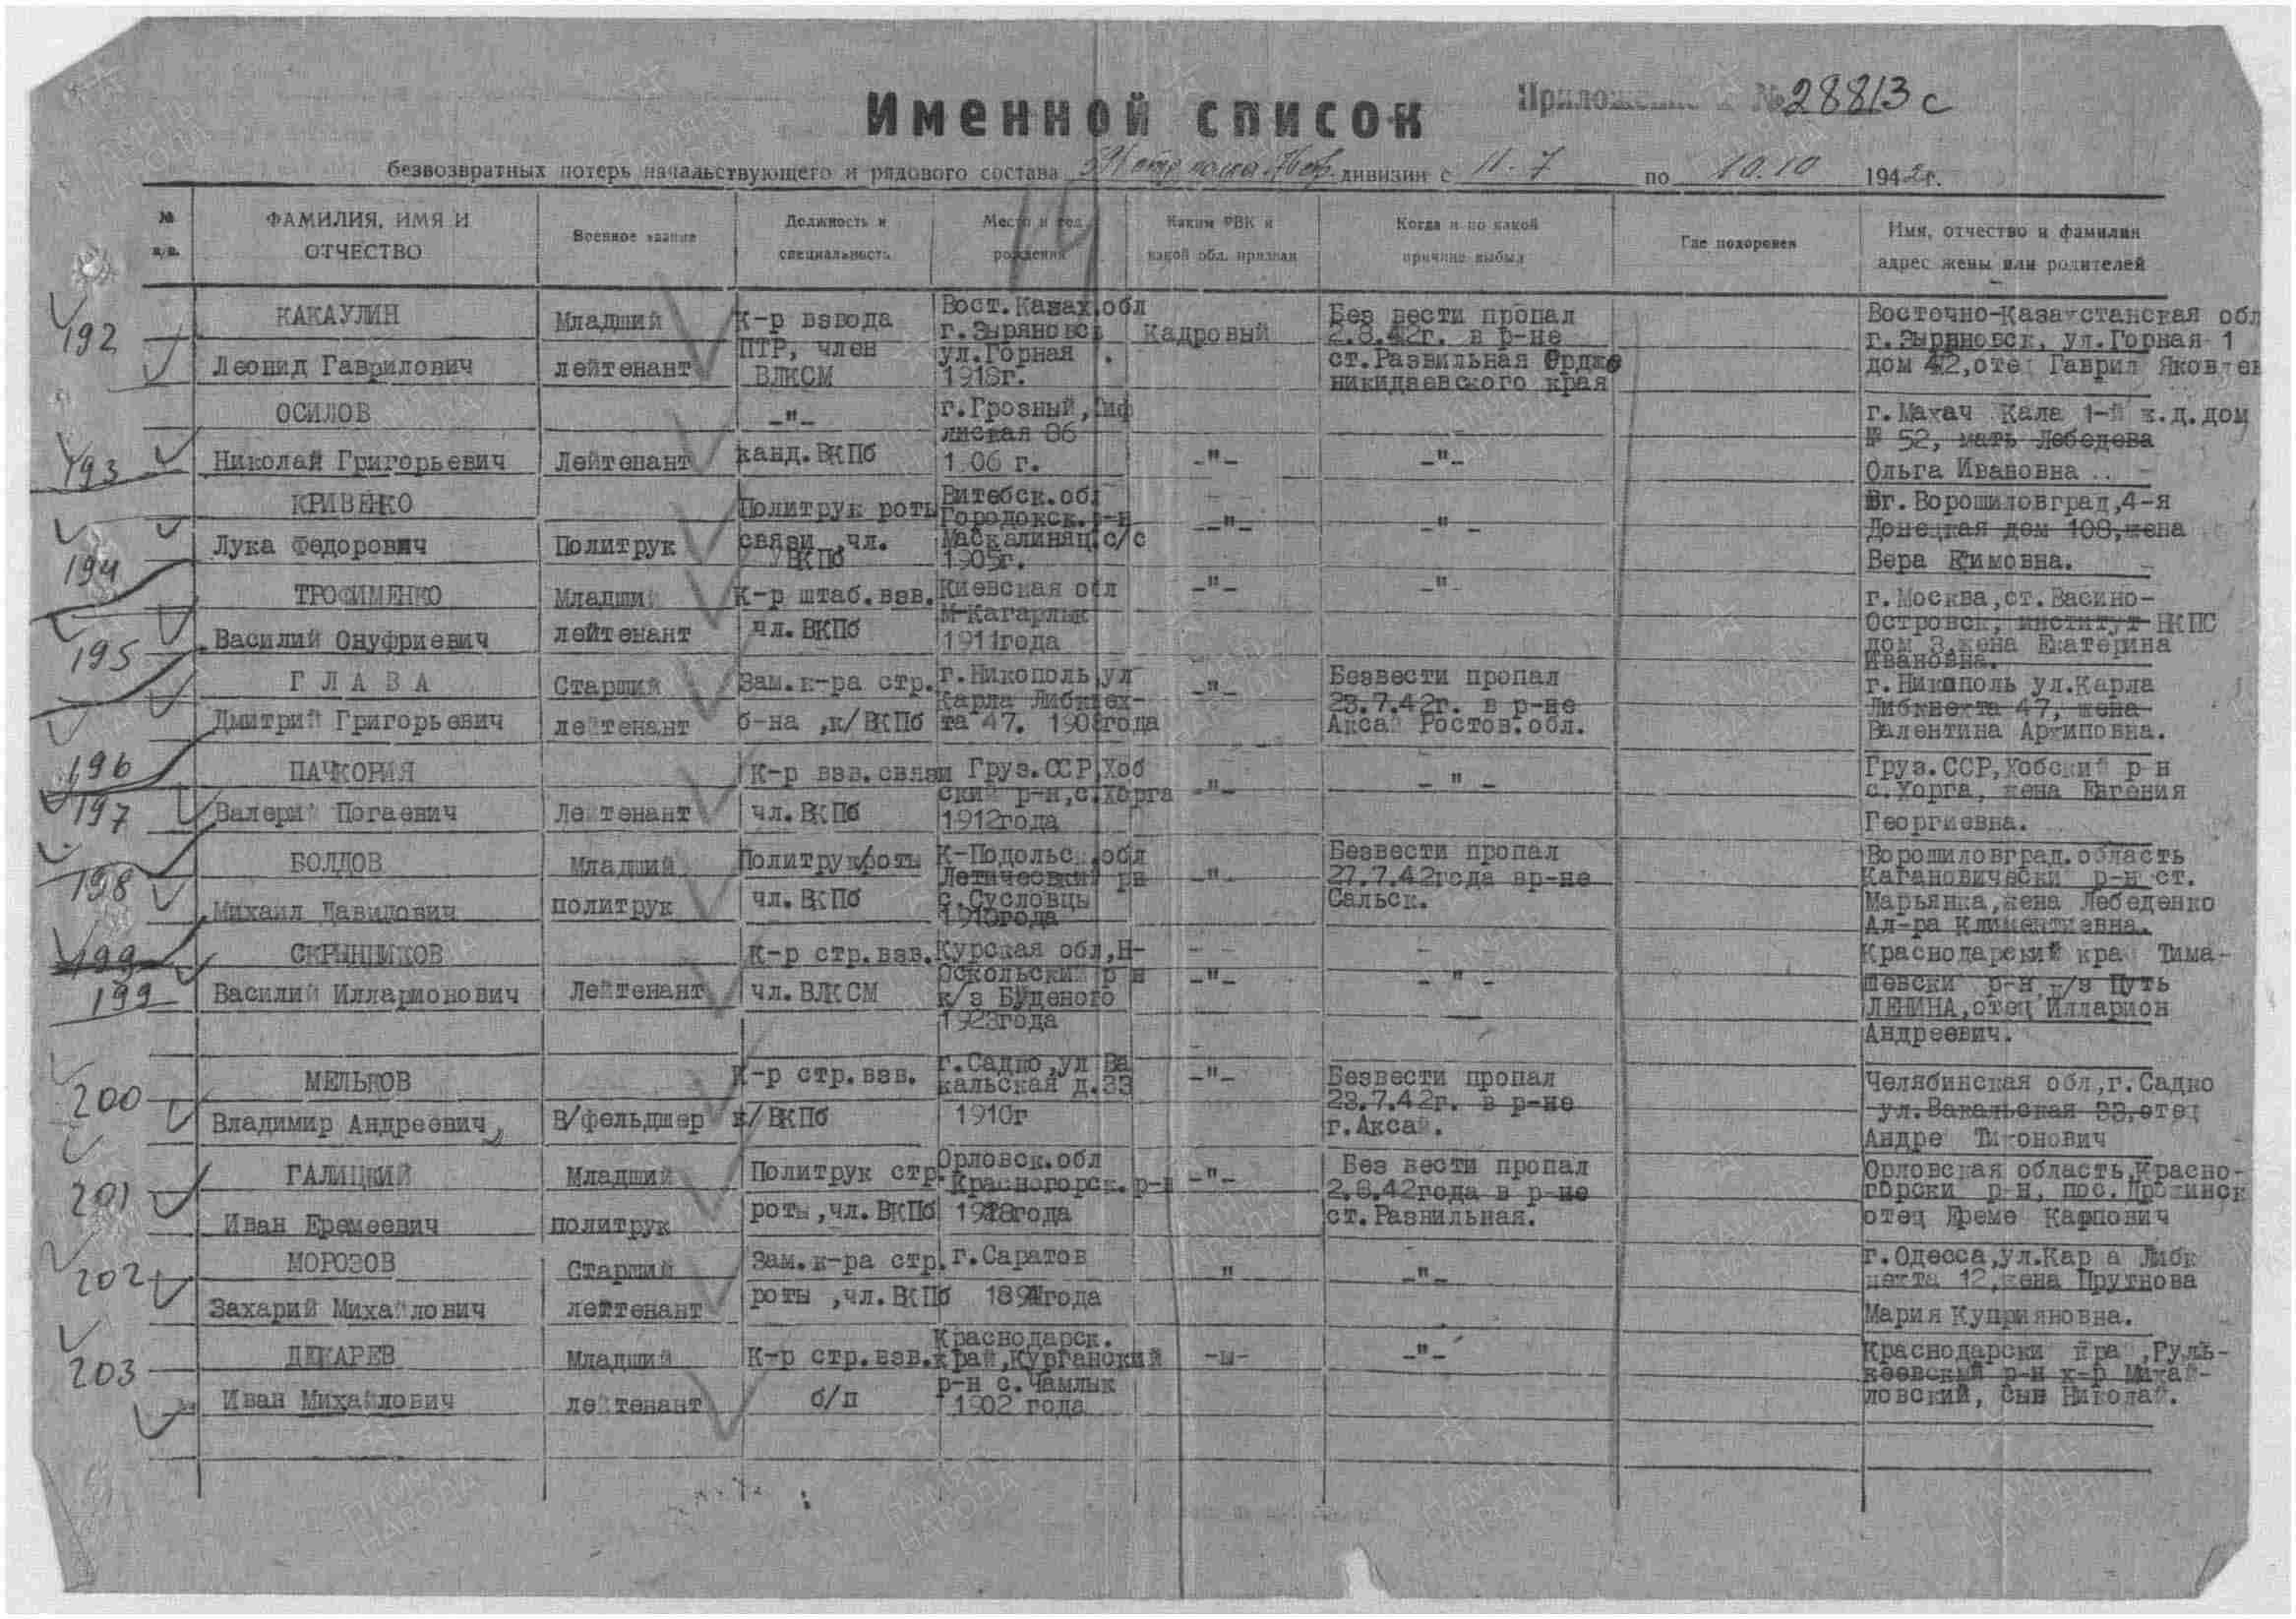 Именной список
Приложение № 28813с
безвозвратных потерь начальствующего и рядового состава дивизии с 11.7 по 10.10 1942г.
№ п/п.
ФАМИЛИЯ, ИМЯ И ОТЧЕСТВО
Военное звание
Должность и специальность
Место и год рождения
Каким РВК и какой обл. призван
Когда и по какой причине выбыл
Где похоронен
Имя, отчество и фамилия адрес жены или родителей
192
КАКАУЛИН
Леонид Гаврилович
Младший
лейтенант
К-р взвода
ПТР, член
ВЛКСМ
Вост.Казах.обл
г.Зыряновск
ул.Горная
1918г.
Кадровый
Без вести пропал
2.8.42г. в р-не
ст.Развильная Орджо
никидзевского края
Восточно-Казахстанская обл
г.Зыряновск, ул.Горная 1
дом 42,отец Гаврил Яковлев
193
ОСИЛОВ
Николай Григорьевич
Лейтенант
-"-
канд.ВКПб
г.Грозный,Тиф
лиская 86
1 06 г.
-"-
-"-
г.Махач Кала 1-й ж.д.дом
№ 52, мать Лебедева
Ольга Ивановна
194
КРИВЕНКО
Лука Федорович
Политрук
Политрук роты
связи ,чл.
ВКПб
Витебск.обл
Городокск.р-н
Маскалиняц.с/с
1905г.
-"-
-"-
г.Ворошиловград,4-я
Донецкая дом 108,жена
Вера Ефимовна.
195
ТРОФИМЕНКО
Василий Онуфриевич
Младший
лейтенант
К-р штаб.взв.
чл.ВКПб
Киевская обл
М-Кагарлык
1911года
-"-
-"-
г.Москва,ст.Васино-
Островск, институт НКПС
дом 3,жена Екатерина
Ивановна.
196
ГЛАВА
Дмитрий Григорьевич
Старший
лейтенант
Зам.к-ра стр.
б-на ,к/ВКПб
г.Никополь,ул
Карла Либкнех-
та 47. 1908года
-"-
Безвести пропал
23.7.42г. в р-не
Аксай Ростов.обл.
г.Никополь ул.Карла
Либкнехта 47, жена
Валентина Архиповна.
197
ПАЧКОРИЯ
Валерий Погаевич
Лейтенант
К-р взв.связи
чл.ВКПб
Груз.ССР,Хоб
ский р-н,с.Хорга
1912года
-"-
-"-
Груз.ССР,Хобский р-н
с.Хорга, жена Евгения
Георгиевна.
198
БОЛДОВ
Михаил Давидович
Младший
политрук
Политрук роты
чл.ВКПб
К-Подольск.обл
Летичевский рн
с.Сусловцы
1910года
-"-
Безвести пропал
27.7.42года вр-не
Сальск.
Ворошиловград.область
Кагановически р-н ст.
Марьянка,жена Лебеденко
Ал-ра Климентиевна.
199
199
СКРЫННИКОВ
Василий Илларионович
Лейтенант
К-р стр.взв.
чл.ВЛКСМ
Курская обл,Н-
Оскольский р н
к/з Буденого
1923года
-"-
-"-
Краснодарский край Тима-
шевский р-н к/з Путь
ЛЕНИНА,отец Илларион
Андреевич.
200
МЕЛЬКОВ
Владимир Андреевич
В/фельдшер
К-р стр.взв.
к/ВКПб
г.Садко,ул Ва
кальская д.33
1910г
-"-
Безвести пропал
23.7.42г. в р-не
г.Аксай.
Челябинская обл,г.Садко
ул.Вакальская 33,отец
Андре Тихонович
201
ГАЛИЦКИЙ
Иван Еремеевич
Младший
политрук
Политрук стр.
роты,чл.ВКПб
Орловск.обл
Красногорск.р-н
1918года
-"-
Без вести пропал
2.8.42года в р-не
ст.Развильная.
Орловская область,Красно-
горски р-н, пос.
отец Ереме Карпович
202
МОРОЗОВ
Захарий Михайлович
Старший
лейтенант
Зам.к-ра стр.
роты ,чл.ВКПб
г.Саратов
года
"
-"-
г.Одесса,ул.Кар а Либк
нехта 12,жена Прутнова
Мария Куприяновна.
203
ДЕКАРЕВ
Иван Михайлович
Младший
лейтенант
К-р стр.взв.
б/п
Краснодарск.
край,Курганский
р-н с.Чамлык
1902 года
-ы-
-"-
Краснодарски край,Руль-
кеевский р-н х-р Михай-
ловский, сын Николай.